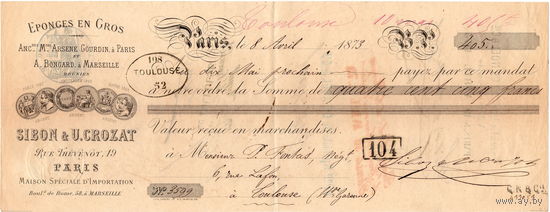 EPONGES EN GROS
ANC.NE M.ON ARSENE GOURDIN, à PARIS
ET
A. BONGARD, à MARSEILLE
RÉUNIES
SIBON & U. CROZAT
RUE THÉVENOT, 19
PARIS
MAISON SPÉCIALE D'IMPORTATION
Boul.d de Rome, 58, à MARSEILLE
Toulouse 10 405
Paris, le 8 Avril 1873 B.P. 405
108
TOULOUSE
52
Au dix Mai prochain payez par ce mandat
à notre ordre, la Somme de quatre cent cinq francs
Valeur, reçue en marchandises.
à Monsieur P. Pontas, Nég.t
104
6, rue Lafon
N° 3599 à Toulouse (H.te Garonne)
www.ay.by